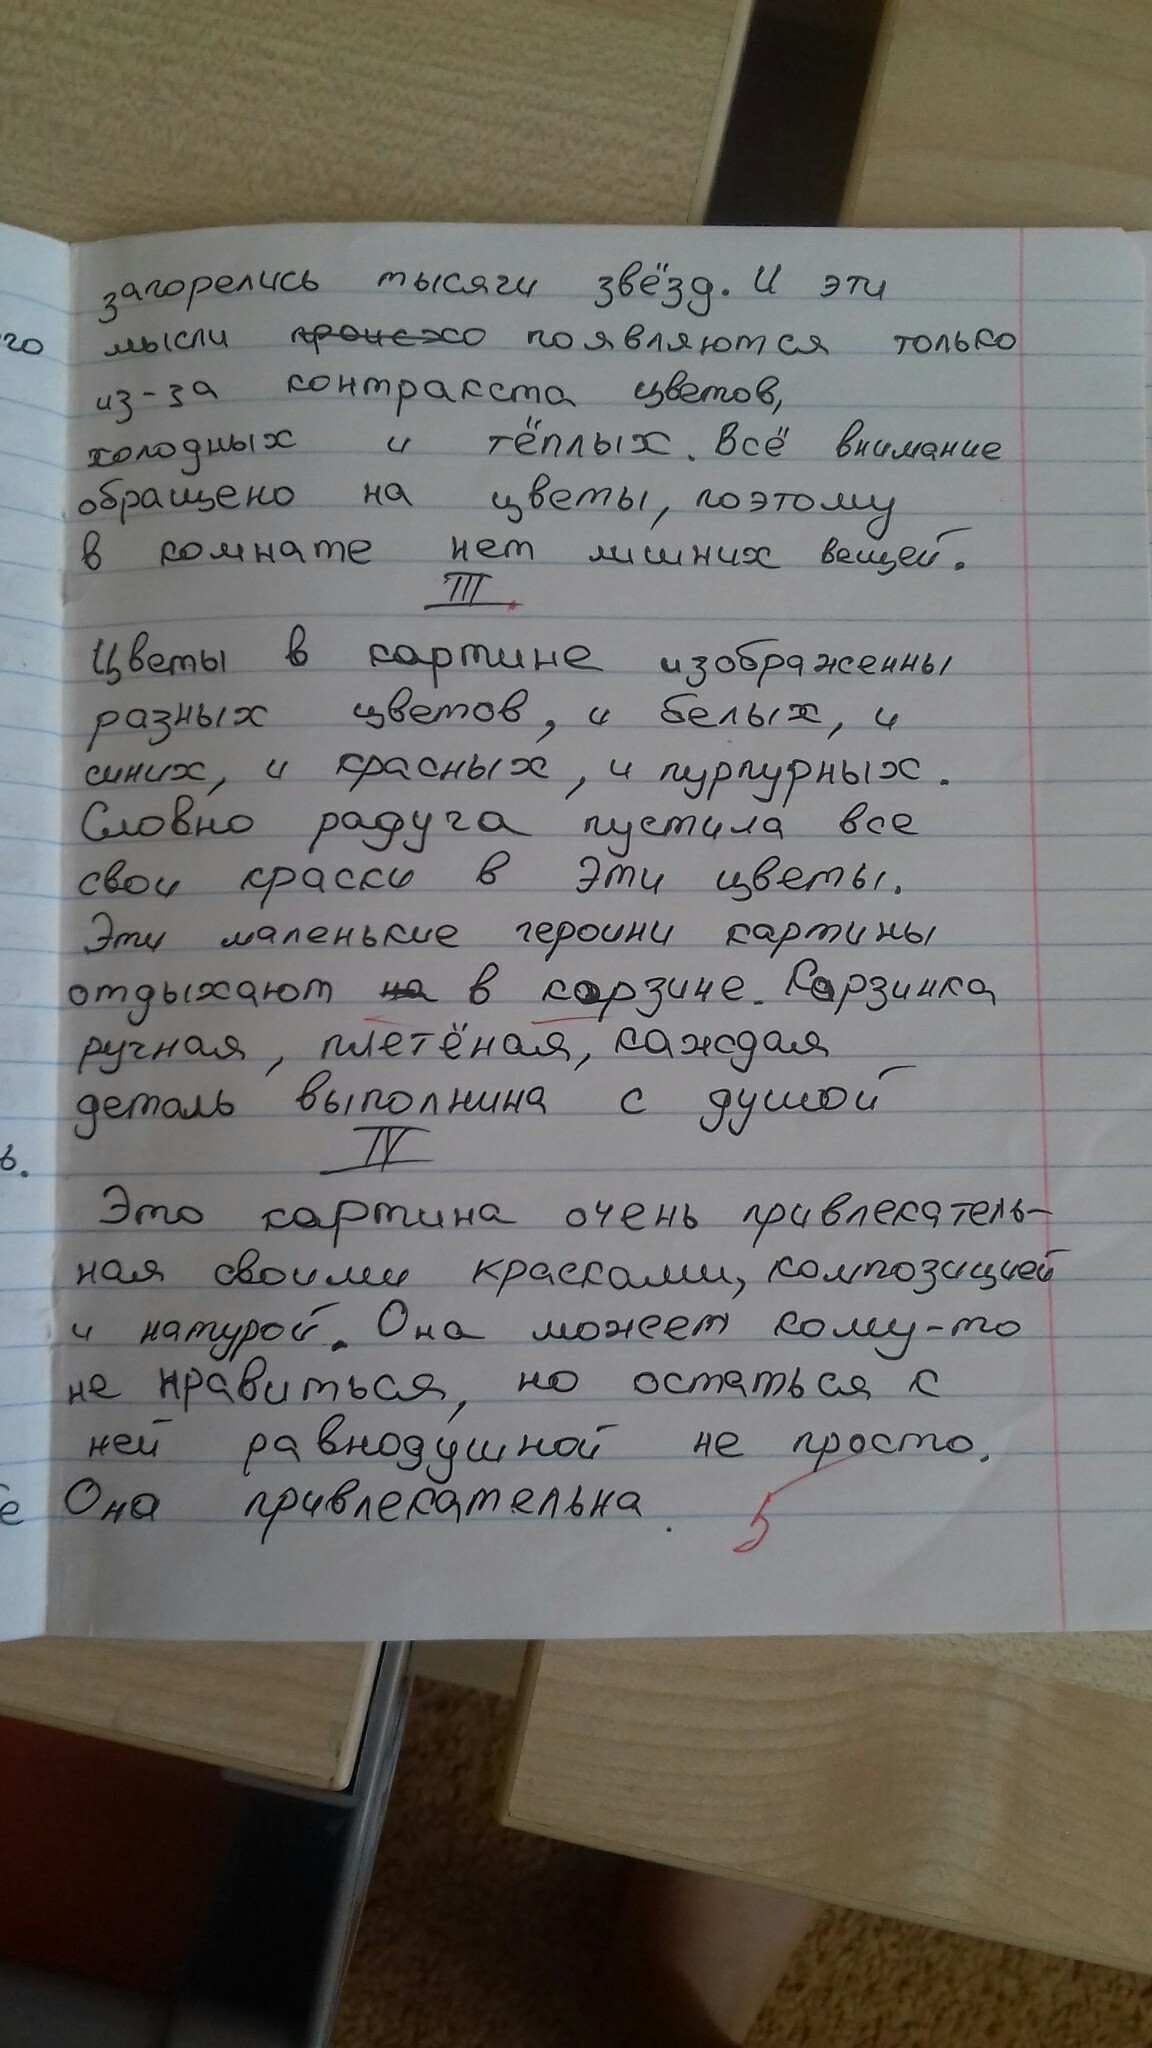 го
загорелись тысячи звёзд. И эти
мысли происхо появляются только
из-за контракста цветов,
холодных и тёплых. Всё внимание
обращено на цветы, поэтому
в комнате нет лишних вещей.
III.
Цветы в картине изображенны
разных цветов, и белых, и
синих, и красных, и пурпурных.
Словно радуга пустила все
свои краски в эти цветы.
Эти маленькие героини картины
отдыхают на в корзине. Корзинка
ручная, плетёная, каждая
деталь выполнина с душой
IV
ь.
Это картина очень привлекатель-
ная своими красками, композицией
и натурой. Она может кому-то
не нравиться, но остаться к
ней равнодушной не просто.
е Она привлекательна.
5